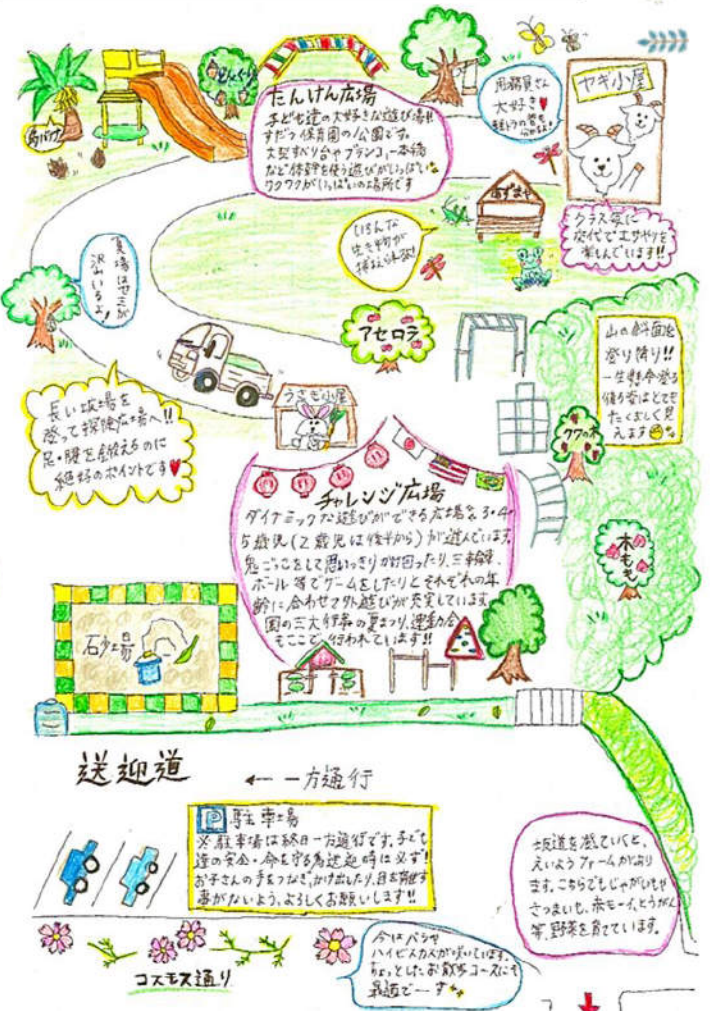 どんぐり
島バナナ
たんけん広場
子ども達の大好きな遊び場!!
すだつ保育園の公園です。
大型すべり台やブランコ、一本橋
など体幹を使う遊びがいっぱい
ワクワクがいっぱいの場所です
用務員さん
大好き♥
ヤギ小屋
クラス毎に
交代でエサやりを
楽しんでいます!!
あずまや
いろんな
生き物が
夏場はセミが
沢山いるよ!
アセロラ
うさぎ小屋
長い坂道を
登って探険広場へ!!
足・腰を鍛えるのに
絶好のポイントです♥
山の斜面を
登り降り!!
一生懸命登る
後ろ姿はとても
たくましく見
えます
クワの木
木もも
チャレンジ広場
ダイナミックな遊びができる広場です。3・4・
5歳児(2歳児は後半から)が遊んでいます。
鬼ごっこをして思いっきり駆け回ったり、三輪車、
ボール等でゲームをしたりとそれぞれの年
齢に合わせて外遊びが充実しています。
園の三大行事の夏まつり、運動会
もここで行われています!!
砂場
送迎道
←一方通行
P 駐車場
※駐車場は終日一方通行です。子ども
達の安全・命を守る為送迎時は必ず!
お子さんの手をつなぎ、かけ出したり、目を離す
事がないよう、よろしくお願いします!!
坂道を登っていくと、
えいようファームがあり
ます。こちらでもじゃがいもや
さつまいも、赤モーイ、とうがん
等、野菜を育てています。
コスモス通り
今はバラや
ハイビスカスが咲いています。
ちょっとしたお散歩コースにも
最適でーす